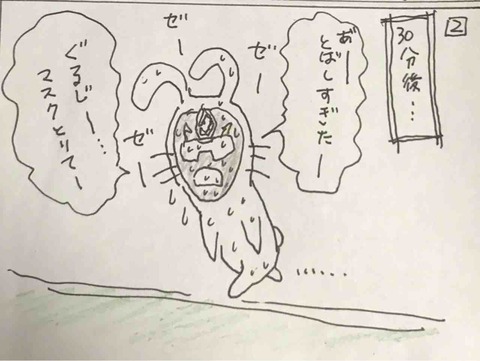 2
30分後…
あ゛ー
とばしすぎたー
ゼー
ゼー
ゼー
ぐるじー…
マスクとりてー